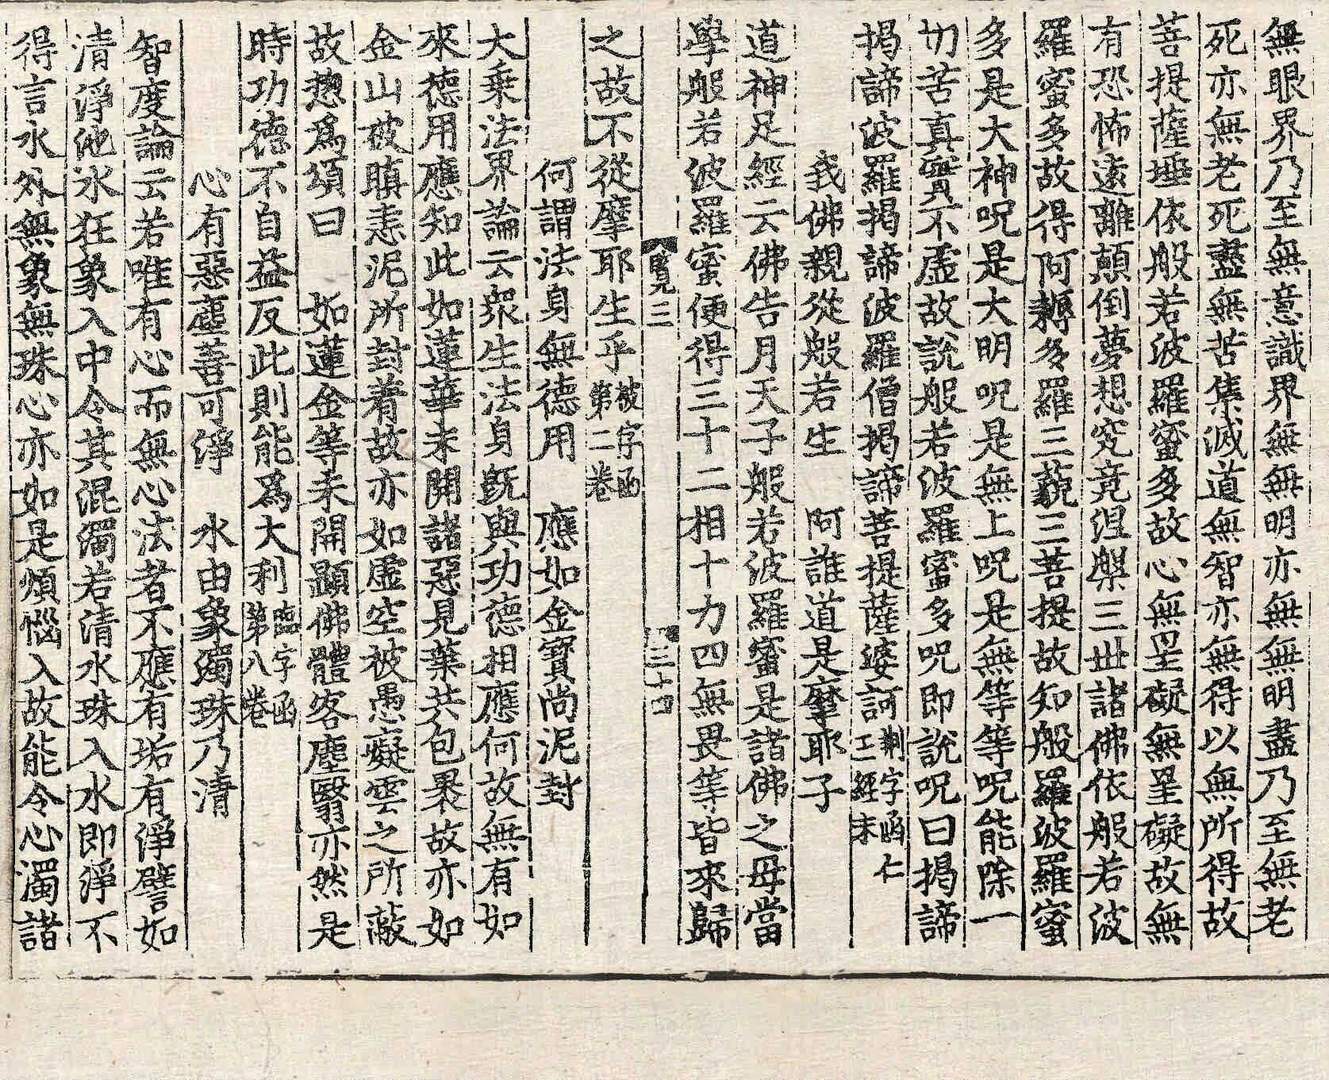 無眼界乃至無意識界無無明亦無無明盡乃至無老
死亦無老死盡無苦集滅道無智亦無得以無所得故
菩提薩埵依般若波羅蜜多故心無罣礙無罣礙故無
有恐怖遠離顛倒夢想究竟涅槃三世諸佛依般若波
羅蜜多故得阿耨多羅三藐三菩提故知般羅波羅蜜
多是大神呪是大明呪是無上呪是無等等呪能除一
切苦真實不虛故說般若波羅蜜多呪即說呪曰揭諦
揭諦波羅揭諦波羅僧揭諦菩提薩婆訶
我佛親從般若生　阿誰道是摩耶子
道神足經云佛告月天子般若波羅蜜是諸佛之母當
學般若波羅蜜便得三十二相十力四無畏等皆來歸
之故不從摩耶生乎 被字函第二卷
何謂法身無德用　應如金寶尚泥封
大乗法界論云衆生法身旣與功德相應何故無有如
來德用應知此如蓮華未開諸惡見葉共包褁故亦如
金山破瞋恚泥所封着故亦如虛空被愚癡雲之所蔽
故揔爲頌曰　如蓮金等未開顯佛體客塵翳亦然是
時功德不自益反此則能爲大利 臨字函第八卷
心有惡塵善可淨　水由象濁珠乃清
智度論云若唯有心而無心法者不應有垢有淨譬如
清淨池水狂象入中令其混濁若清水珠入水即淨不
得言水外無象無珠心亦如是煩惱入故能令心濁諸